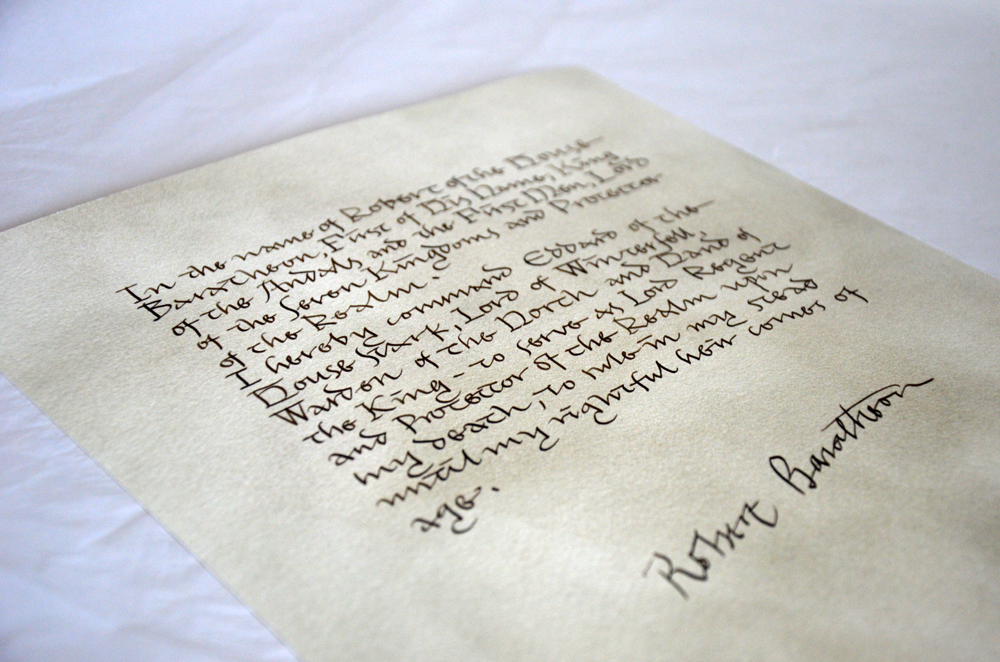 In the name of Robert of the House
Baratheon, First of His Name, King
of the Andals and the First Men, Lord
of the Seven Kingdoms and Protector
of the Realm.
I hereby command Eddard of the
House Stark, Lord of Winterfell,
Warden of the North and Hand of
the King - to serve as Lord Regent
and Protector of the Realm upon
my death, to rule in my stead
until my rightful heir comes of
age.
Robert Baratheon